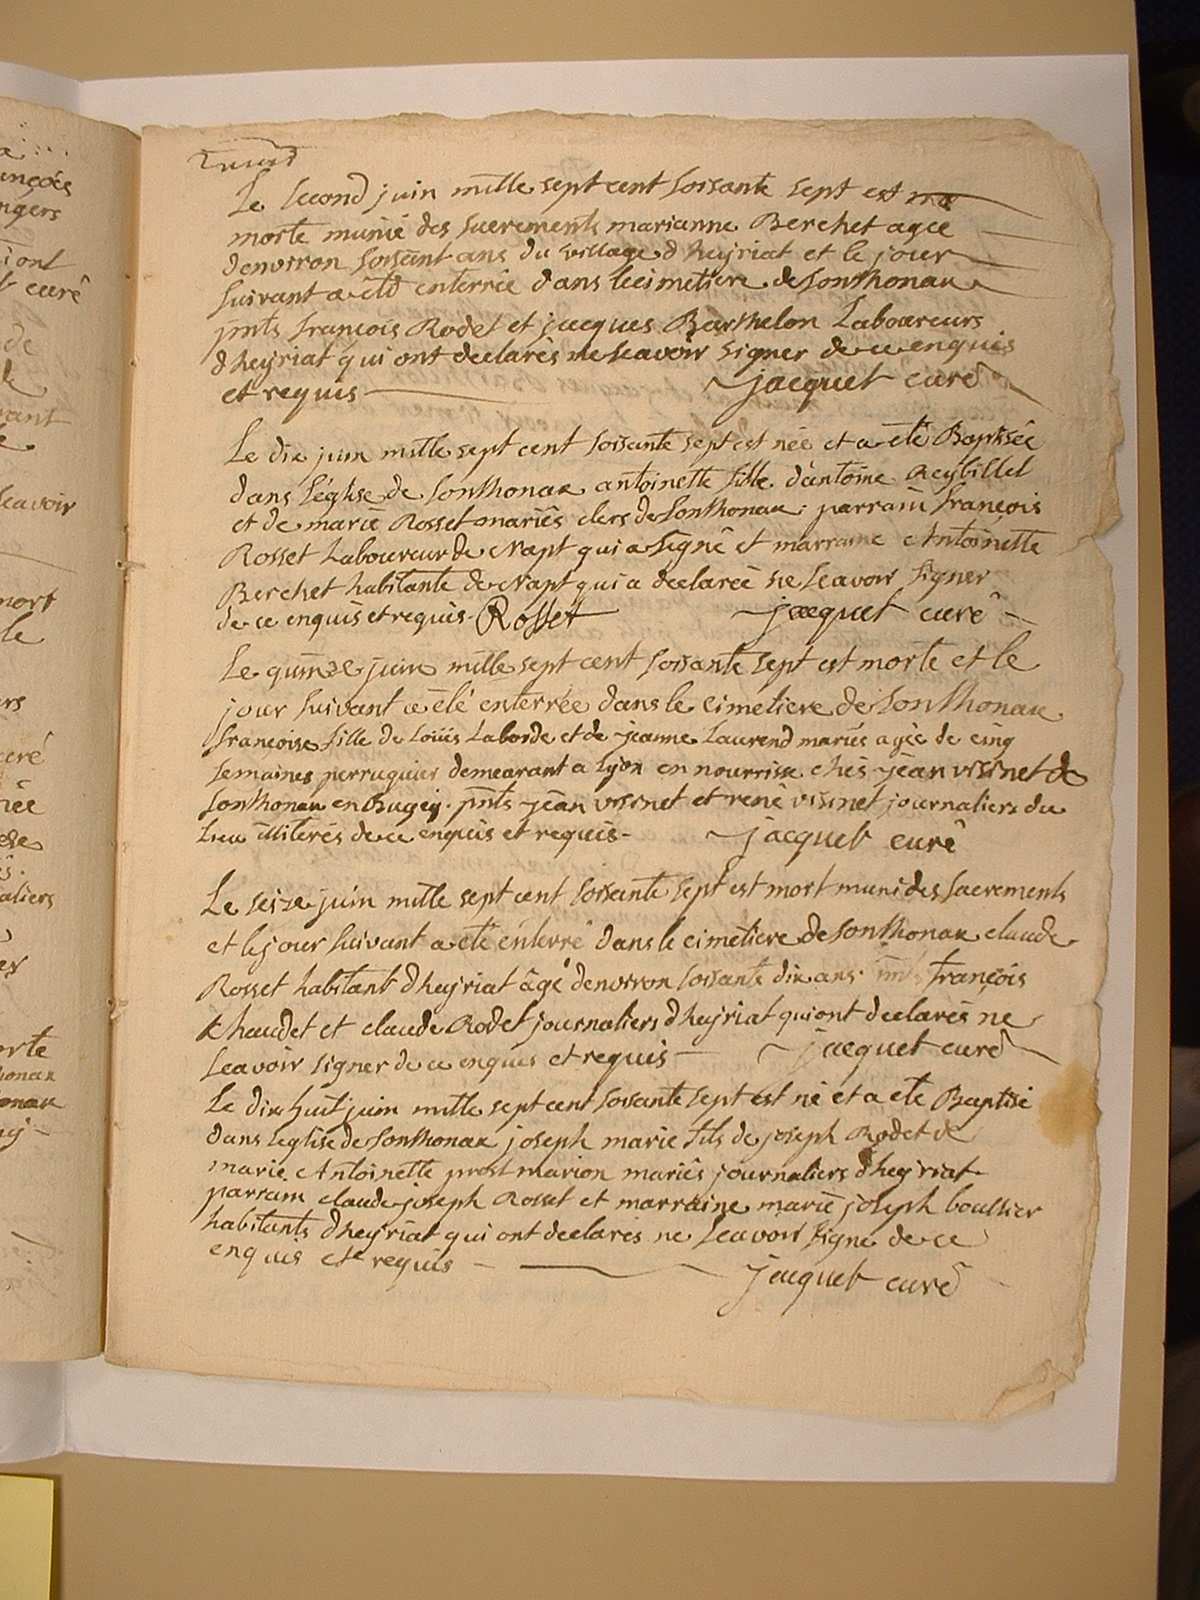 Le second juin mille sept cent soisante sept est
morte munie des sacrements marianne Berchet agee
denviron soisant ans du village d heyriat et le jour
suivant a eté enterrée dans le cimetiere de sonthonax
pnts françois Rodet et jacques Barthelon Laboureurs
d heyriat qui ont declarés ne scavoir signer de ce enquis
et requis jacquet curé
Le dix juin mille sept cent soisante sept est née et a eté Baptisée
dans l'église de sonthonax antoinette fille d'antoine Reybillet
et de marie Rosset mariés clers de sonthonax parrain françois
Rosset Laboureur de Napt qui a signé et marraine Antoinette
Berchet habitante de Napt qui a declarée ne scavoir signer
de ce enquis et requis. Rosset jacquet curé
Le quinze juin mille sept cent soisante sept est morte et le
jour suivant a été enterrée dans le cimetiere de sonthonax
francoise fille de Loüis Laborde et de jeanne Laurend mariés agée de cinq
semaines perruquier demeurant a Lyon en nourrisse chés jean visinet de
sonthonax en Bugey. pnts jean visinet et rené visinet journaliers du
Lieu illiterés de ce enquis et requis - jacquet curé
Le seize juin mille sept cent soisante sept est mort muni des sacrements
et le jour suivant a eté enterré dans le cimetiere de sonthonax claude
Rosset habitant d heyriat âgé denviron soisante dix ans. pnts françois
chaudet et claude Rodet journaliers d heyriat qui ont declarés ne
scavoir signer de ce enquis et requis - jacquet curé
Le dix huit juin mille sept cent soisante sept est né et a eté Baptisé
dans Leglise de sonthonax joseph marie fils de joseph Rodet &
marie Antoinette prost marion mariés journaliers d heyriat
parrain claude joseph Rosset et marraine marie joseph boullier
habitants d heyriat qui ont declarés ne scavoir signe de ce
enquis et requis - jacquet curé